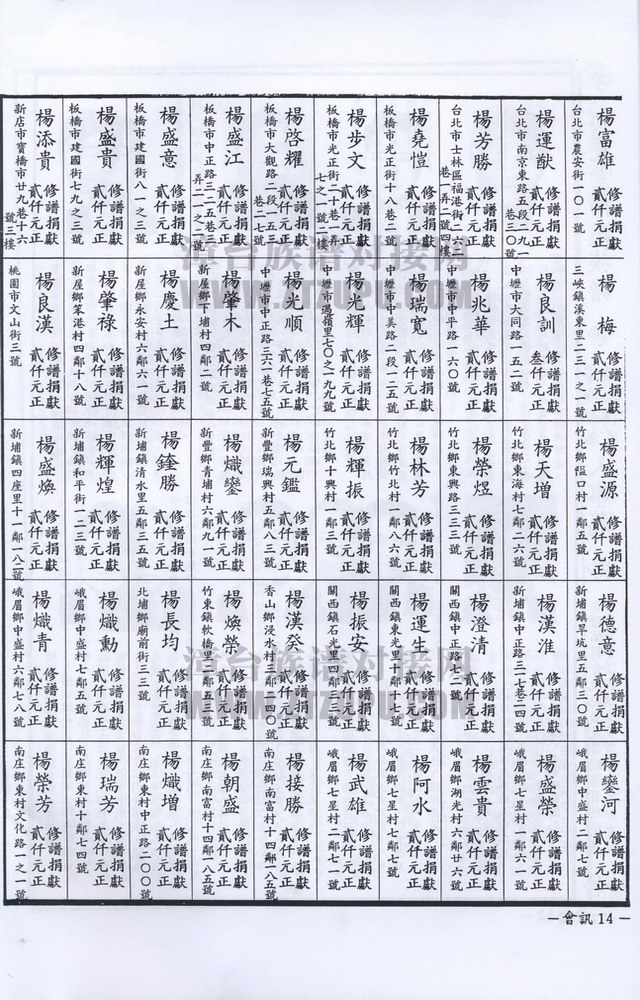 楊富雄 修譜捐獻 貳仟元正
台北市農安街一〇一號
楊運猷 修譜捐獻 貳仟元正
台北市南京東路五段二九一巷三〇號
楊芳勝 修譜捐獻 貳仟元正
台北市士林區福港街二六二巷一弄二號四樓
楊堯愷 修譜捐獻 貳仟元正
板橋市光正街十八巷二號
楊步文 修譜捐獻 貳仟元正
板橋市光正街二十巷一弄七之一號二樓
楊啓耀 修譜捐獻 貳仟元正
板橋市大觀路二段一五三巷二七號
楊盛江 修譜捐獻 貳仟元正
板橋市中正路三一五巷三弄二一之二號
楊盛意 修譜捐獻 貳仟元正
板橋市建國街八一之三號
楊盛貴 修譜捐獻 貳仟元正
板橋市建國街七九之三號
楊添貴 修譜捐獻 貳仟元正
新店市寶橋市廿九巷十六號三樓
楊梅 修譜捐獻 貳仟元正
三峽鎮溪東里二三一之一號
楊良訓 修譜捐獻 叁仟元正
中壢市大同路一五二號
楊兆華 修譜捐獻 貳仟元正
中壢市中平路一六〇號
楊瑞寬 修譜捐獻 貳仟元正
中壢市中美路二段一二五號
楊光輝 修譜捐獻 貳仟元正
中壢市過嶺里七〇之一九九號
楊光順 修譜捐獻 貳仟元正
中壢市中正路三六一巷七五號
楊肇木 修譜捐獻 貳仟元正
新屋鄉下埔村四鄰二號
楊慶土 修譜捐獻 貳仟元正
新屋鄉永安村六鄰六一號
楊肇祿 修譜捐獻 貳仟元正
新屋鄉笨港村四鄰十八號
楊良漢 修譜捐獻 貳仟元正
桃園市文山街三號
楊盛源 修譜捐獻 貳仟元正
竹北鄉隘口村一鄰五號
楊天增 修譜捐獻 貳仟元正
竹北鄉東海村七鄰二六號
楊榮煜 修譜捐獻 貳仟元正
竹北鄉東興路三三三號
楊林芳 修譜捐獻 貳仟元正
竹北鄉竹北村一鄰八六號
楊輝振 修譜捐獻 貳仟元正
竹北鄉十興村一鄰三號
楊元鑑 修譜捐獻 貳仟元正
新豐鄉瑞興村五鄰八三號
楊熾鑾 修譜捐獻 貳仟元正
新豐鄉青埔村六鄰九一號
楊鍷勝 修譜捐獻 貳仟元正
新埔鎮清水里五鄰三五號
楊輝煌 修譜捐獻 貳仟元正
新埔鎮和平街一二三號
楊盛煥 修譜捐獻 貳仟元正
新埔鎮四座里十一鄰一八二號
楊德意 修譜捐獻 貳仟元正
新埔鎮旱坑里五鄰三〇號
楊漢准 修譜捐獻 貳仟元正
新埔鎮中正路三一七巷二四號
楊澄清 修譜捐獻 貳仟元正
關西鎮中正路七二號
楊運生 修譜捐獻 貳仟元正
關西鎮東光里四鄰十七號
楊振安 修譜捐獻 貳仟元正
關西鎮石光里四鄰三號
楊漢癸 修譜捐獻 貳仟元正
香山鄉浸水村三鄰二四〇號
楊煥榮 修譜捐獻 貳仟元正
竹東鎮軟橋里八鄰五號
楊長均 修譜捐獻 貳仟元正
北埔鄉廟前街三三號
楊熾勳 修譜捐獻 貳仟元正
峨眉鄉中盛村七鄰五號
楊熾青 修譜捐獻 貳仟元正
峨眉鄉中盛村六鄰七八號
楊鑾河 修譜捐獻 貳仟元正
峨眉鄉中盛村二鄰七號
楊盛榮 修譜捐獻 貳仟元正
峨眉鄉七星村一鄰六號
楊雲貴 修譜捐獻 貳仟元正
峨眉鄉湖光村六鄰廿六號
楊阿水 修譜捐獻 貳仟元正
峨眉鄉七星村七鄰七號
楊武雄 修譜捐獻 貳仟元正
峨眉鄉七星村二鄰七一號
楊接勝 修譜捐獻 貳仟元正
南庄鄉南富村十四鄰一八五號
楊朝盛 修譜捐獻 貳仟元正
南庄鄉南富村十四鄰一八五號
楊熾增 修譜捐獻 貳仟元正
南庄鄉東村中正路二〇〇號
楊瑞芳 修譜捐獻 貳仟元正
南庄鄉東村十鄰七四號
楊榮芳 修譜捐獻 貳仟元正
南庄鄉東村文化路一之一號
漳台族谱对接网
WWW.ZTZUPU.COM
漳台族谱对接网
WWW.ZTZUPU.COM
－會訊 14－